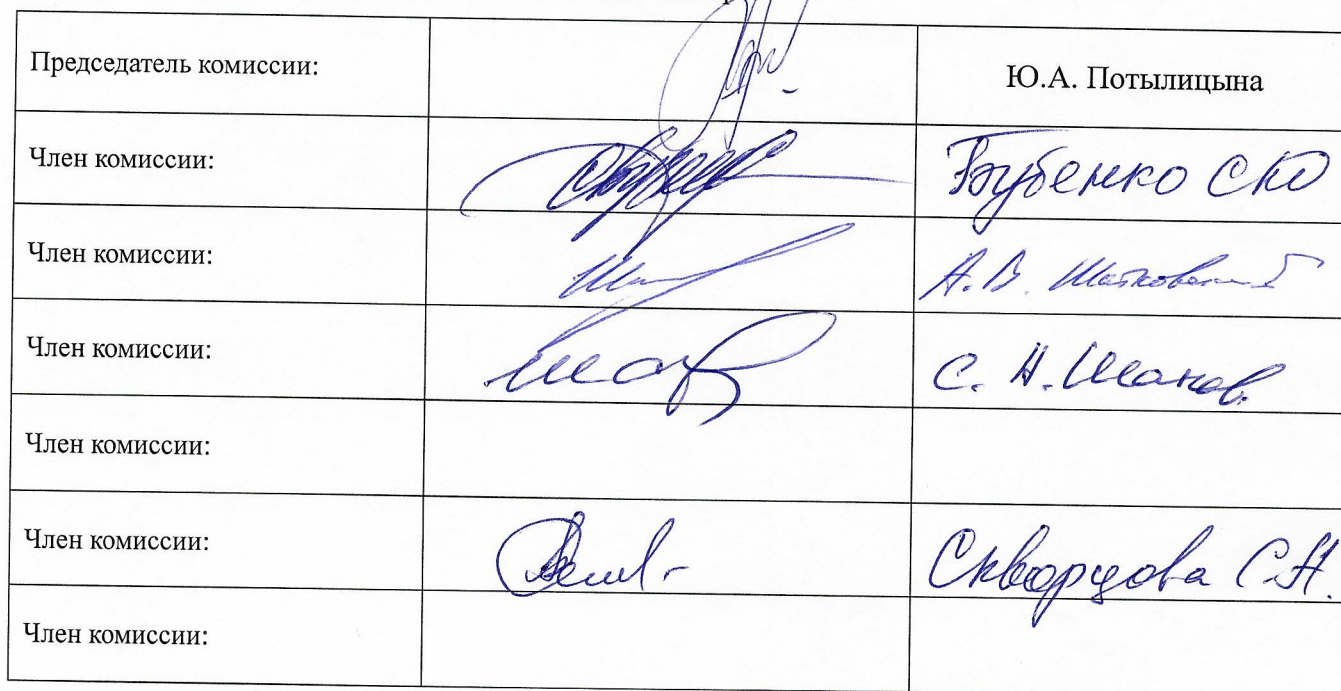 Председатель комиссии: Ю.А. Потылицына
Член комиссии: Бубенко С.Ю
Член комиссии: А.В. Шатковский
Член комиссии: С. Н. Шанов
Член комиссии:
Член комиссии: Скворцова С.Н.
Член комиссии: